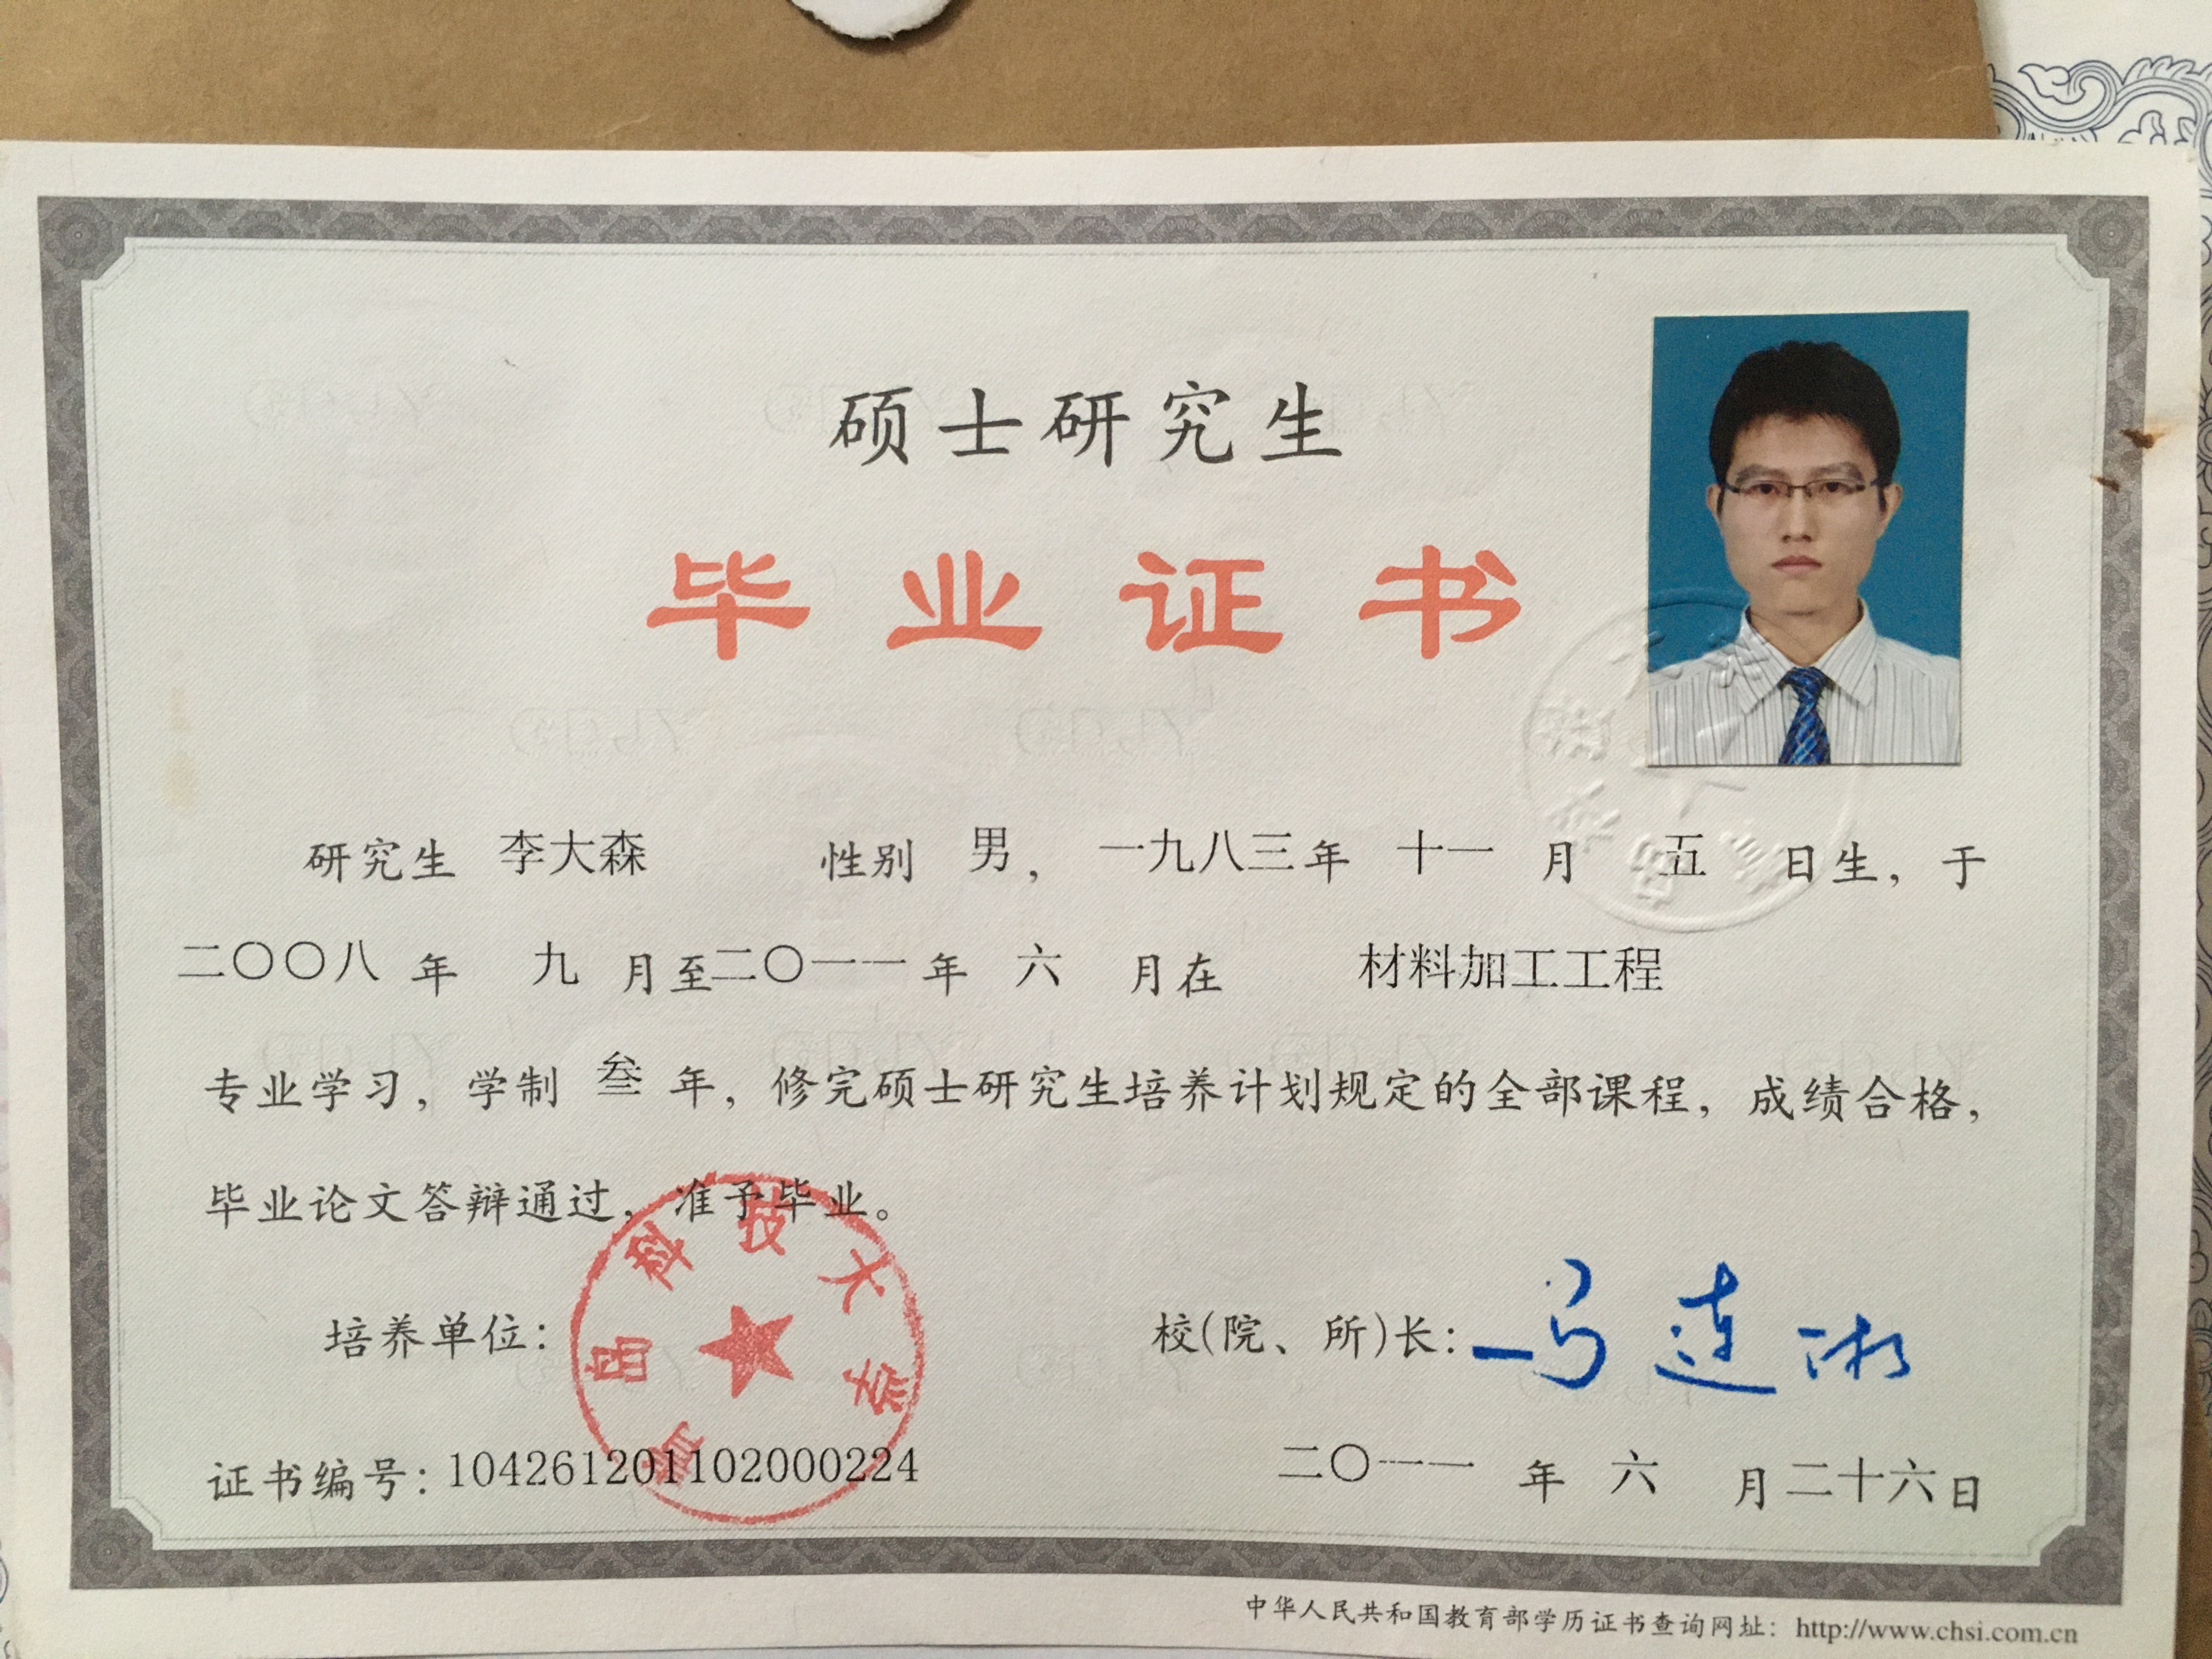 硕士研究生
毕业证书
研究生 李大森 性别 男, 一九八三年 十一 月 五 日生, 于
二〇〇八 年 九 月至二〇一一 年 六 月在 材料加工工程
专业学习, 学制 叁 年, 修完硕士研究生培养计划规定的全部课程, 成绩合格,
毕业论文答辩通过, 准予毕业。
青岛科技大学
培养单位:
校(院、所)长: 马连湘
证书编号: 104261201102000224
二〇一一 年 六 月二十六日
中华人民共和国教育部学历证书查询网址: http://www.chsi.com.cn